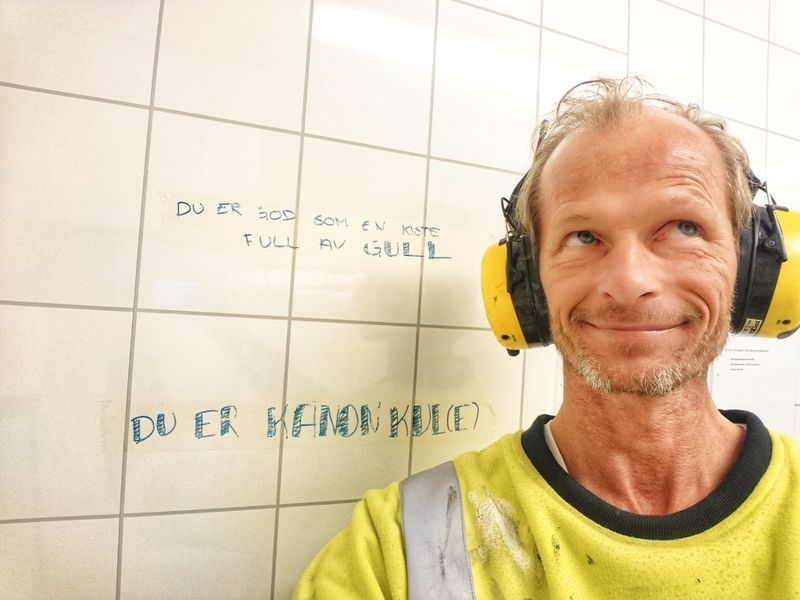 DU ER GOD SOM EN KISTE
FULL AV GULL
DU ER KANON KUL(E)